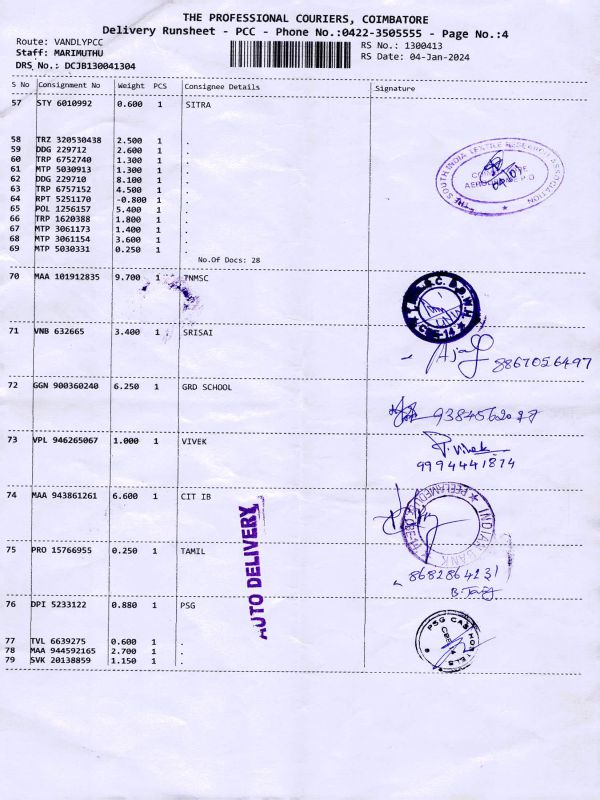 THE PROFESSIONAL COURIERS, COIMBATORE
Delivery Runsheet - PCC - Phone No.:0422-3505555 - Page No.:4
Route: VANDLYPCC
RS No.: 1300413
Staff: MARIMUTHU
RS Date: 04-Jan-2024
DRS No.: DCJB130041304
S No Consignment No Weight PCS Consignee Details Signature
57 STY 6010992 0.600 1 SITRA
58 TRZ 320530438 2.500 1 .
59 DDG 229712 2.600 1 .
60 TRP 6752740 1.300 1 .
61 MTP 5030913 1.300 1 .
62 DDG 229710 8.100 1 .
63 TRP 6757152 4.500 1 .
64 RPT 5251170 -0.800 1 .
65 POL 1256157 5.400 1 .
66 TRP 1620388 1.800 1 .
67 MTP 3061173 1.400 1 .
68 MTP 3061154 3.600 1 .
69 MTP 5030331 0.250 1 .
THE SOUTH INDIA TEXTILE RESEARCH ASSOCIATION
No.Of Docs: 28
70 MAA 101912835 9.700 1 TNMSC
71 VNB 632665 3.400 1 SRISAI
8867056497
72 GGN 900360240 6.250 1 GRD SCHOOL
73 VPL 946265067 1.000 1 VIVEK
9994441874
74 MAA 943861261 6.600 1 CIT IB
INDIAN BANK
AUTO DELIVERY
75 PRO 15766955 0.250 1 TAMIL
8682864231
76 DPI 5233122 0.880 1 PSG
PSG CAS HOSTELS
77 TVL 6639275 0.600 1 .
78 MAA 944592165 2.700 1 .
79 SVK 20138859 1.150 1 .